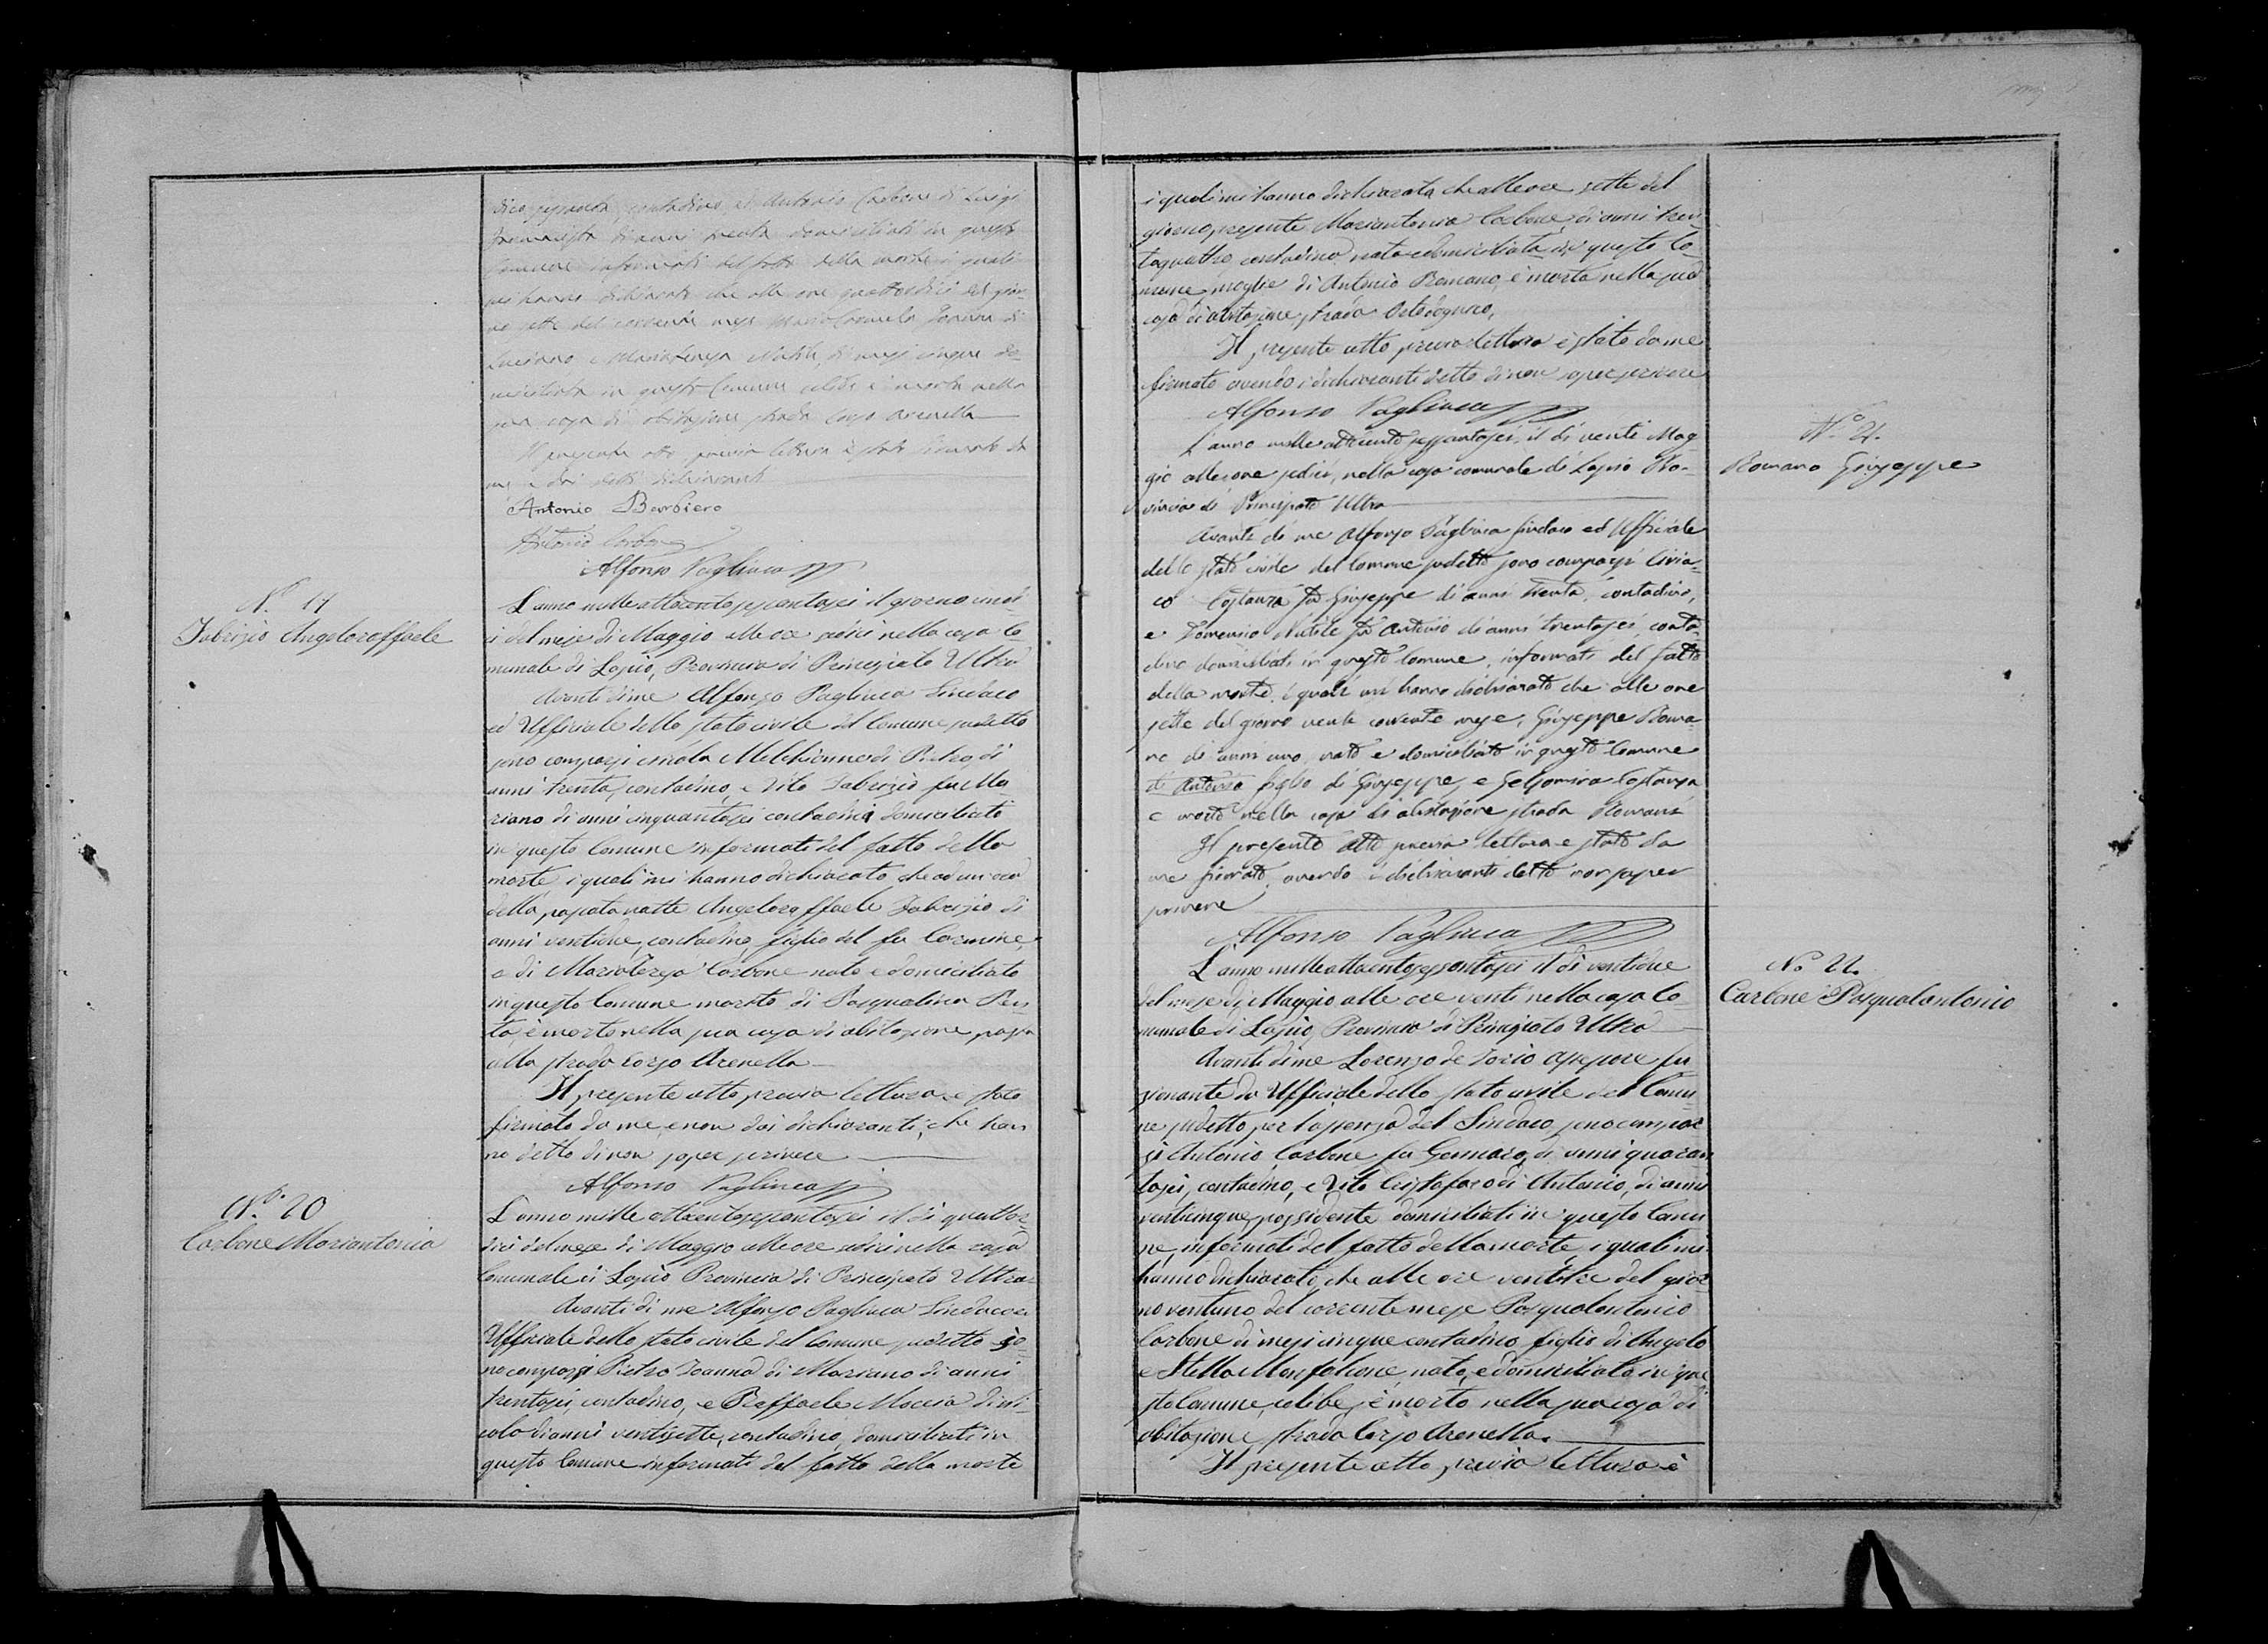 dici sessanta contadino ed Antonio Carbone di Luigi
di anni trenta domiciliati in questo
Comune informati del fatto della morte i quali
mi hanno dichiarato che alle ore quattordici del gior-
no sette del corrente mese Maria Carmela
Luciano e Mariateresa Natile, di mesi cinque do-
miciliata in questo Comune celibe è morta nella
sua casa di abitazione strada Corso Arenella
Il presente atto previa lettura è stato firmato da
me e dai detti dichiaranti
Antonio Barbiero
Antonio Carbone
Alfonso Pagliuca
N.º 19
Fabrizio Angeloraffaele
L'anno mille ottocento sessantasei il giorno undi-
ci del mese di Maggio alle ore sedici nella casa Co-
munale di Lapio, Provincia di Principato Ultra
Avanti di me Alfonso Pagliuca Sindaco
ed Uffiziale dello stato civile del Comune sudetto
sono comparsi Nicola Melchionne di Pietro, di
anni trenta, contadino, e Vito Fabrizio fu Ma-
riano di anni cinquantasei contadini domiciliati
in questo Comune informati del fatto della
morte, i quali mi hanno dichiarato che ad un'ora
della passata notte Angeloraffaele Fabrizio di
anni ventidue, contadino, figlio del fu Carmine,
e di Mariateresa Carbone nato e domiciliato
in questo Comune marito di Pasqualina Pen-
ta, è morto nella sua casa di abitazione posta
alla strada Corso Arenella
Il presente atto previa lettura è stato
firmato da me, e non dai dichiaranti, che han
no detto di non saper scrivere
Alfonso Pagliuca
N.º 20
Carbone Mariantonia
L'anno mille ottocentosessantasei il dì quattor-
dici del mese di Maggio alle ore sedici nella casa
Comunale di Lapio Provincia di Principato Ultra
Avanti di me Alfonso Pagliuca Sindaco ed
Uffiziale dello stato civile del Comune sudetto so-
no comparsi Pietro Ioanna di Mariano di anni
trentasei, contadino, e Raffaele Moccia di Ni-
cola di anni ventisette, contadino, domiciliati in
questo Comune informati del fatto della morte
i quali mi hanno dichiarato che alle ore sette del
giorno presente Mariantonia Carbone, di anni tren-
taquattro contadina nata e domiciliata in questo Co-
mune moglie di Antonio Romano, è morta nella sua
casa di abitazione strada
Il presente atto previa lettura è stato da me
firmato avendo i dichiaranti detto di non saper scrivere
Alfonso Pagliuca
N.º 21.
Romano Giuseppe
L'anno mille ottocento sessantasei, il dì venti Mag-
gio alle ore sedici, nella casa comunale di Lapio Pro-
vincia di Principato Ultra
Avanti di me Alfonso Pagliuca Sindaco ed Uffiziale
dello stato civile del Comune sudetto sono comparsi Ciria-
co Costanza fu Giuseppe di anni trenta, contadino,
e Domenico Natile fu Antonio di anni trentasei, conta-
dino domiciliati in questo Comune, informati del fatto
della morte, i quali mi hanno dichiarato che alle ore
sette del giorno venti corrente mese, Giuseppe Roma-
no di anni uno, nato e domiciliato in questo Comune
di Antonio figlio di Giuseppe, e Gelsomina Costanza
è morto nella casa di abitazione strada Romani
Il presente atto previa lettura è stato da
me firmato, avendo i dichiaranti detto non saper
scrivere
Alfonso Pagliuca
N.º 22.
Carbone Pasqualantonio
L'anno mille ottocentosessantasei il dì ventidue
del mese di Maggio alle ore venti nella casa Co-
munale di Lapio, Provincia di Principato Ultra
Avanti di me Lorenzo de Iorio assessore fu
zionante da Uffiziale dello stato civile del Comu-
ne sudetto per l'assenza del Sindaco, sono compar-
si Antonio Carbone fu Gennaro, di anni quaran-
tasei, contadino, e Vito Cristofaro di Antonio, di anni
venticinque, possidente domiciliati in questo Comu-
ne, informati del fatto della morte, i quali mi
hanno dichiarato, che alle ore ventitre del gior-
no ventuno del corrente mese Pasqualantonio
Carbone di mesi cinque contadino figlio di Angelo
e Stella Monfalcone, nato, e domiciliato in que
sto Comune, celibe, è morto nella sua casa di
abitazione strada Corso Arenella.
Il presente atto, previa lettura è